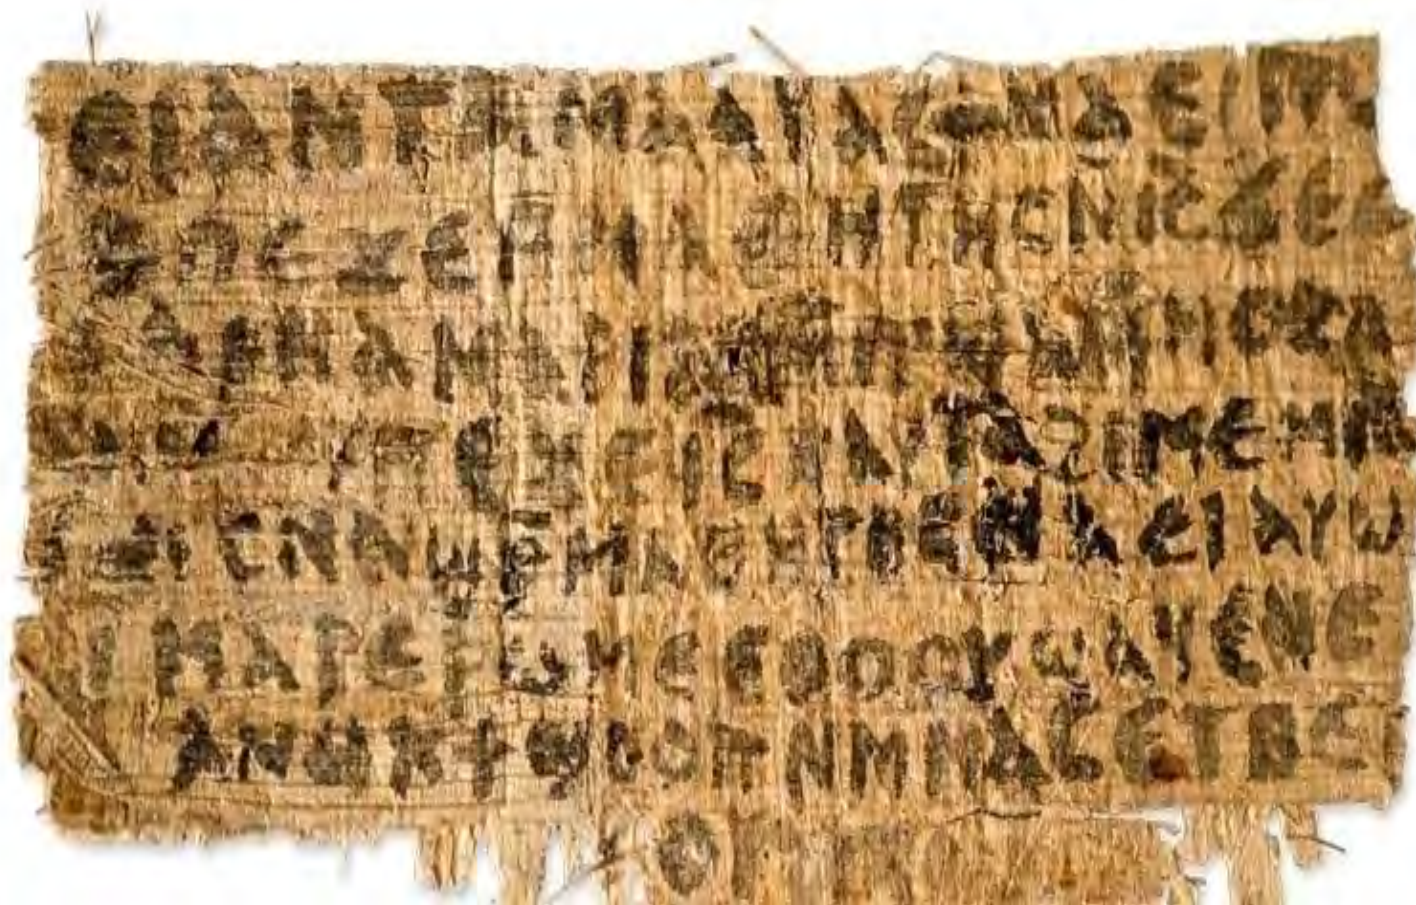 ⲉⲓ ⲁⲛ ⲧⲁⲙⲁⲁⲩ ⲁⲥϯ ⲛⲁⲉⲓ ⲡ
ⲡⲉϫⲉ ⲙⲙⲁⲑⲏⲧⲏⲥ ⲛⲓ̅ⲥ̅ ϫⲉ
ⲁⲣⲛⲁ ⲙⲁⲣⲓⲁⲙ
ⲡⲉϫⲉ ⲓ̅ⲥ̅ ⲛⲁⲩ ⲧⲁϩⲓⲙⲉ ⲙⲛ
ⲥⲛⲁϣⲣⲙⲁⲑⲏⲧⲏⲥ ⲛⲁⲉⲓ ⲁⲩⲱ
ⲙⲁⲣⲉⲣⲱⲙⲉ ⲉⲑⲟⲟⲩ ϣⲁϥⲉ ⲛⲉ
ⲁⲛⲟⲕ ϯϣⲟⲟⲡ ⲛⲙⲙⲁⲥ ⲉⲧⲃⲉ